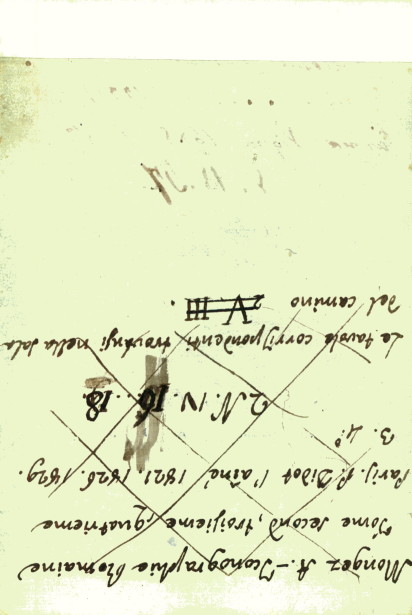 Mongez A. - Iconographie Romaine
Tome second, troisieme, quatrieme
Parij. P. Didot l'ainé 1821. 1826. 1829.
3. 4°.
2. N. IV. 16. 18.
Le tavole corrispondenti trovansi nella Sala
del camino A III.